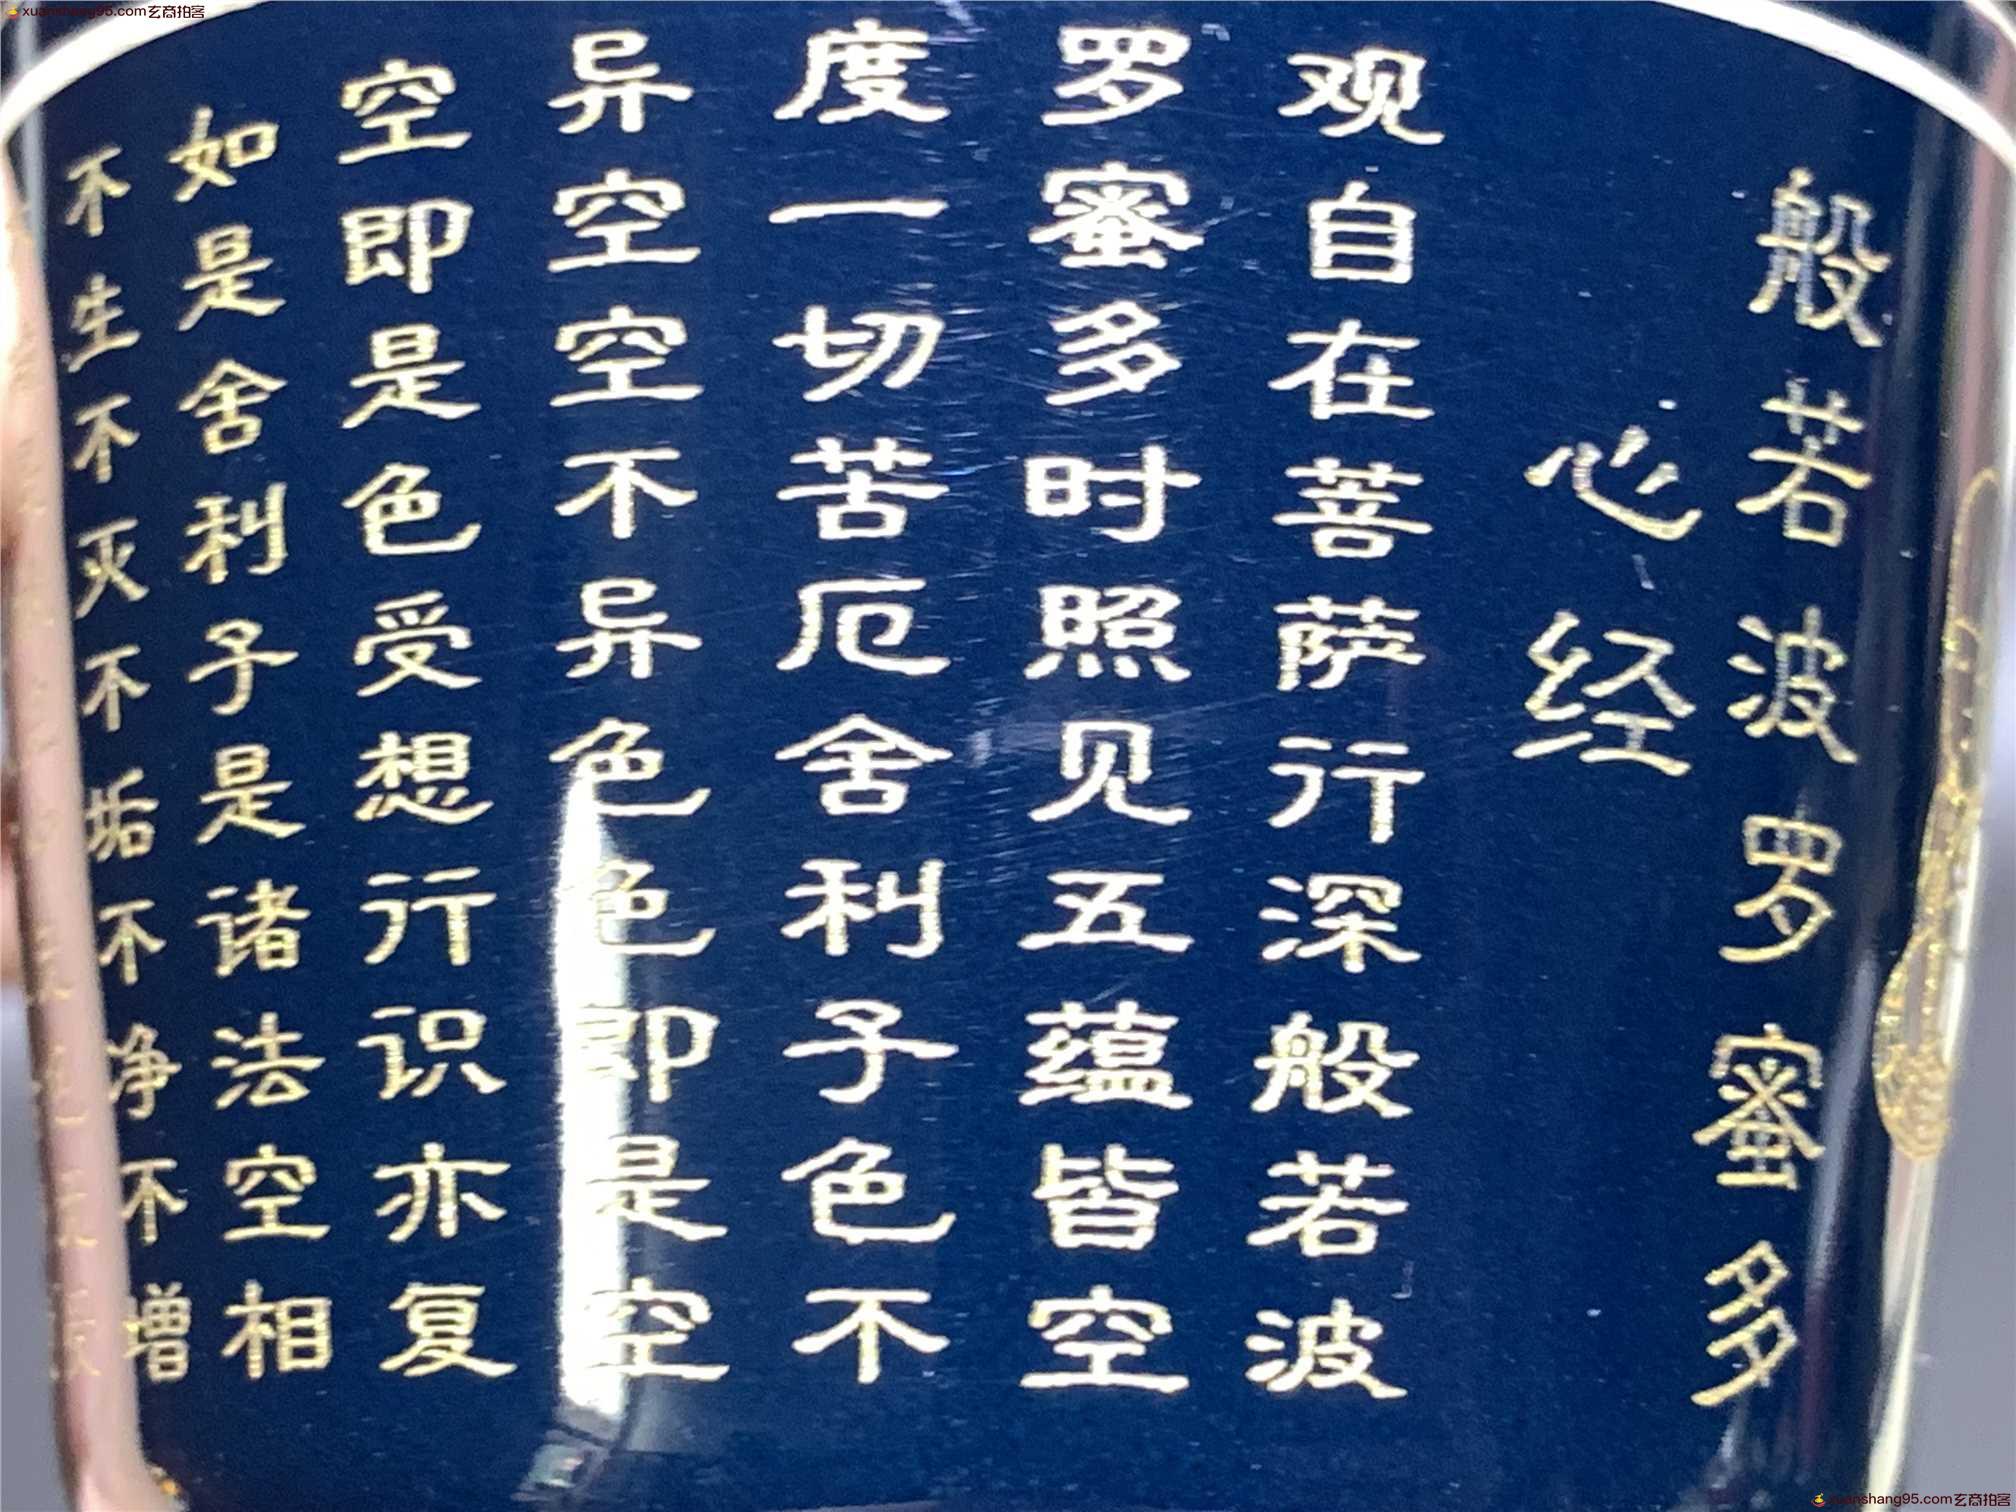 xuanshang95.com玄商拍客
般若波罗蜜多
心经
观自在菩萨行深般若波
罗蜜多时照见五蕴皆空
度一切苦厄舍利子色不
异空空不异色色即是空
空即是色受想行识亦复
如是舍利子是诸法空相
不生不灭不垢不净不增
xuanshang95.com玄商拍客